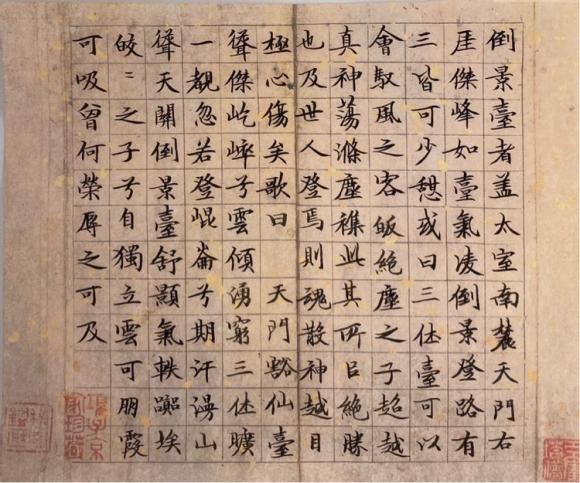 倒景臺者盖太室南麓天門右
厓傑峰如臺氣凌倒景登路有
三皆可少憇或曰三休臺可以
會馭風之客皈絕塵之子超越
真神蕩滌塵襟此其所㠯絕勝
也及世人登焉則魂散神越目
極心傷矣歌曰 天門豁仙臺
聳傑屹崪兮雲傾湧窮三休曠
一覩忽若登崐崙兮期汗漫山
聳天關倒景臺舒顥氣軼躅埃
皎〻之子兮自獨立雲可朋霞
可吸曾何榮辱之可及
項子京家珍藏